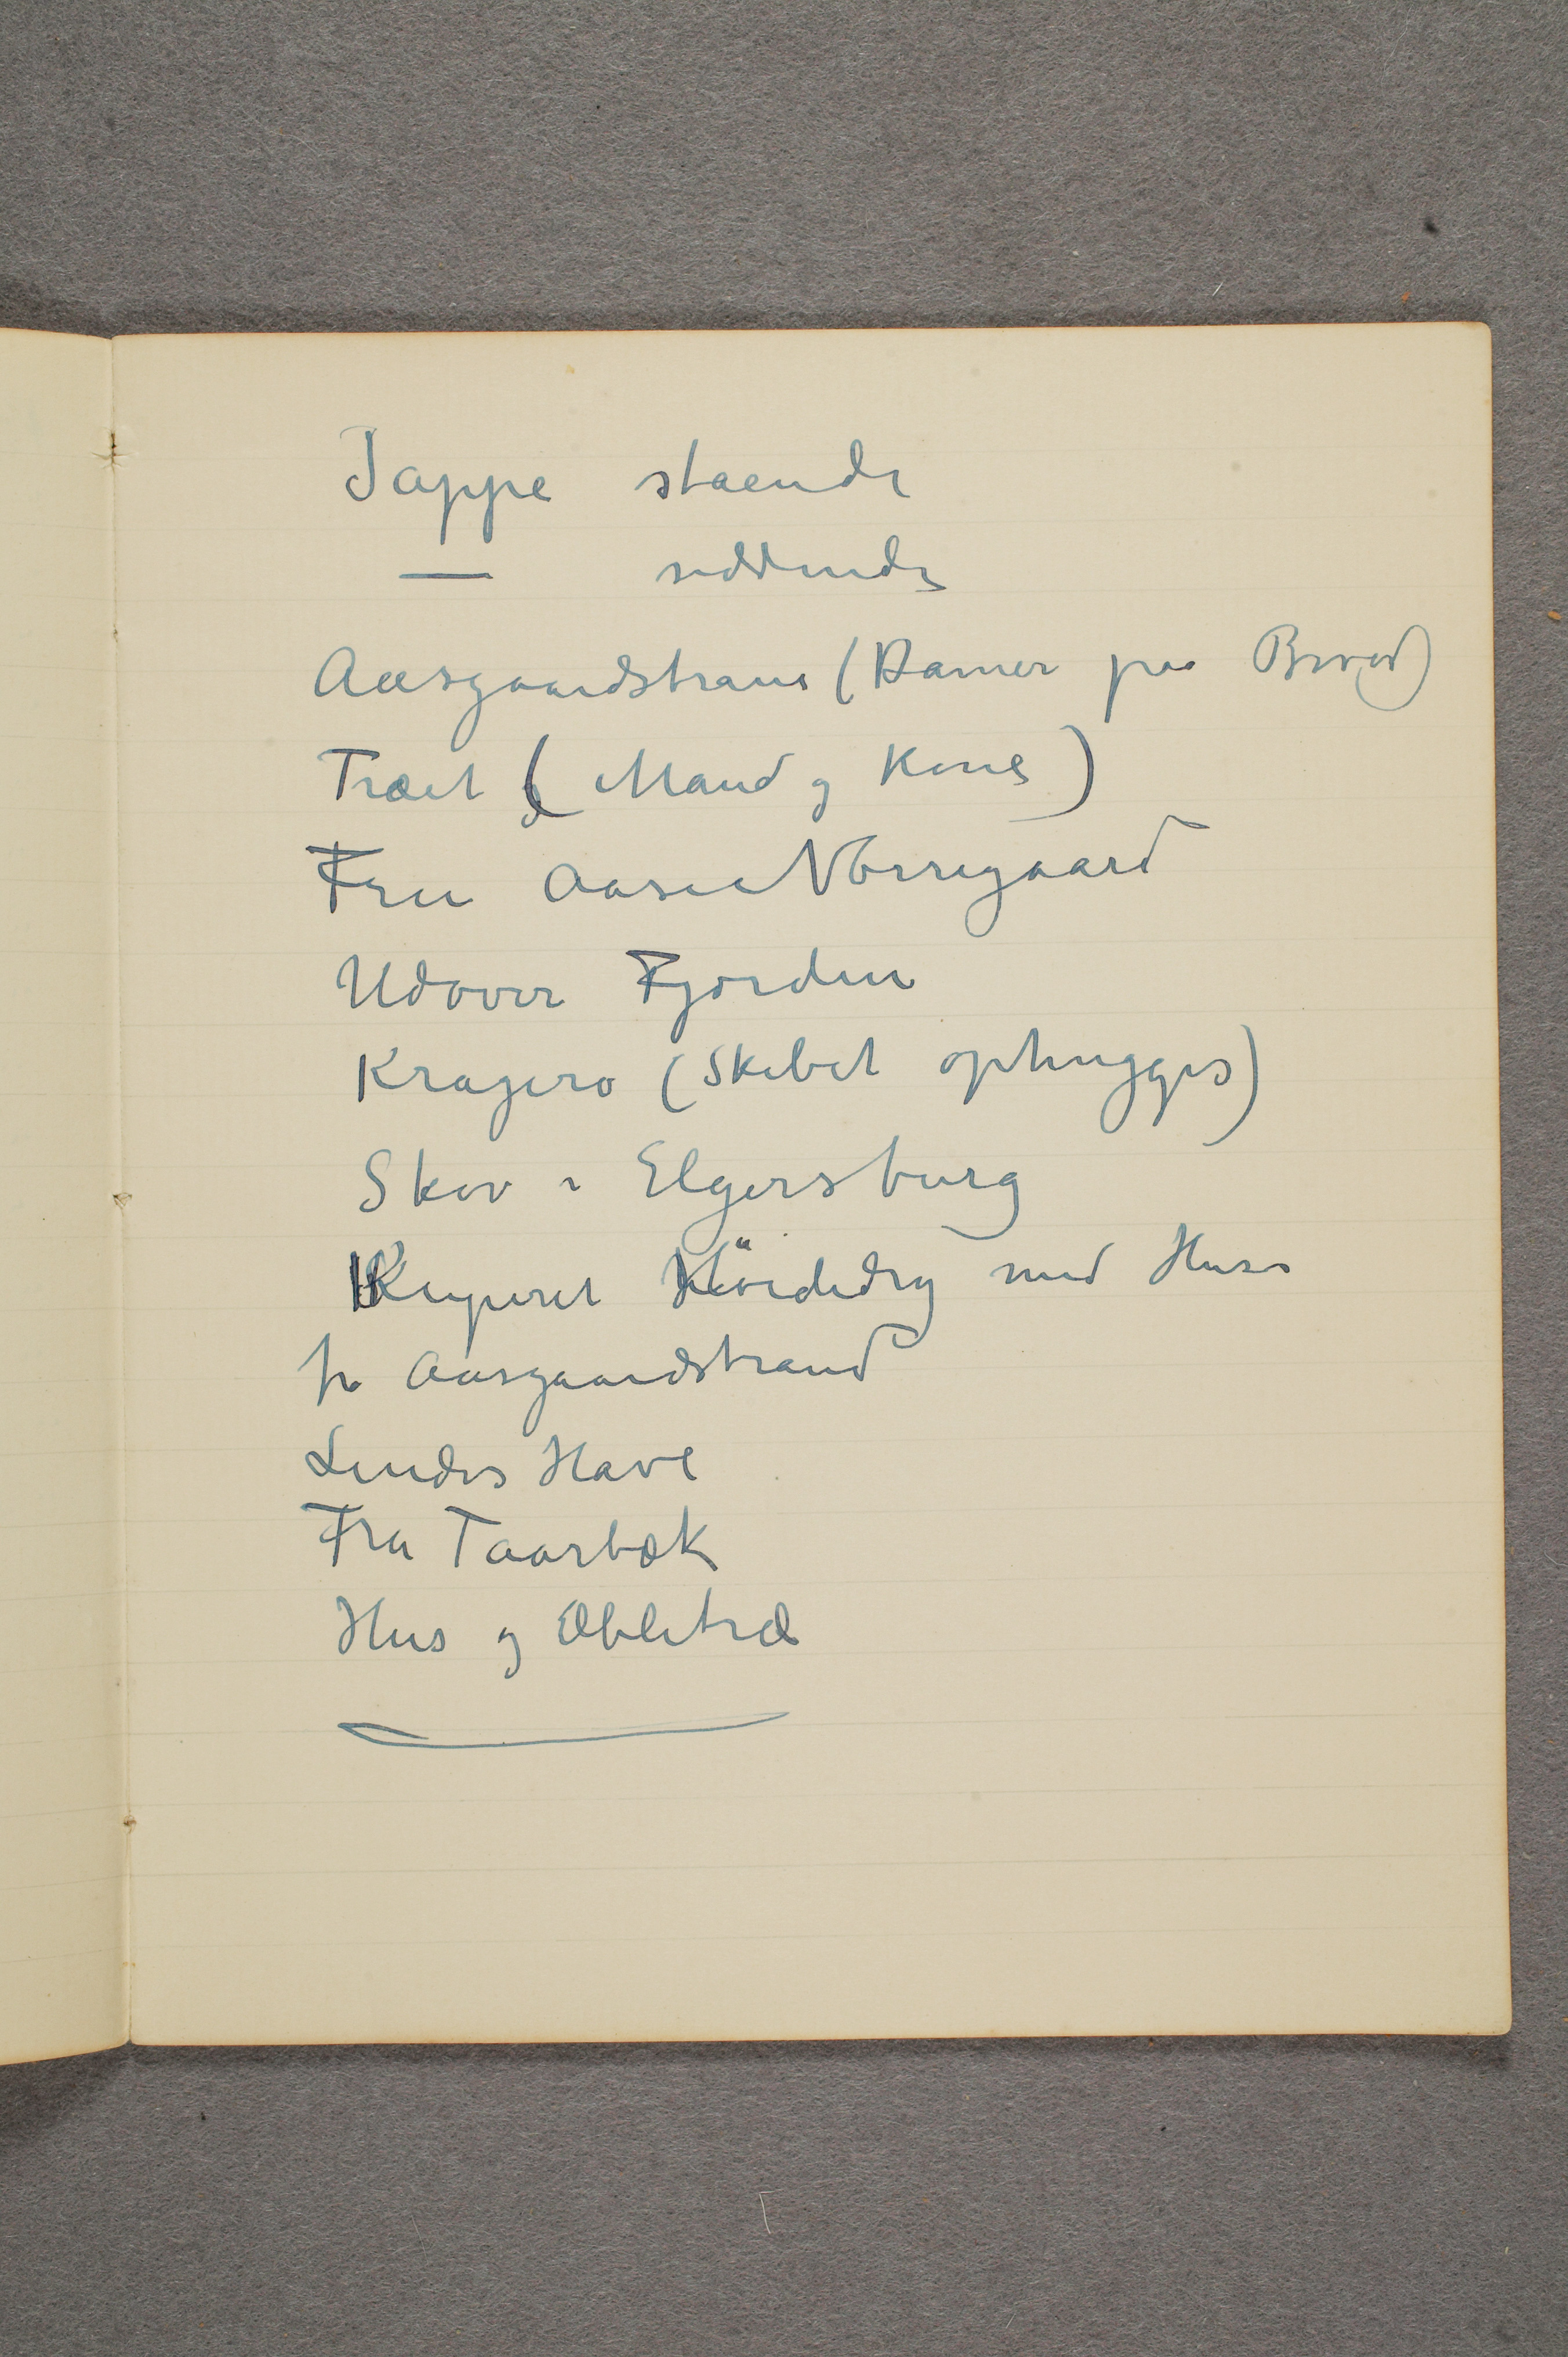 Jappe staende
— siddende
Aasgaardstrand (Damer paa Broed)
Træet (Mand og Kone)
Fru Aase Nörregaard
Udover Fjorden
Kragerø (Skibet ophugges)
Skov i Elgersburg
Kuperet Höidedrag med Huse
fra Aasgaardstrand
Lindes Have
Fra Taarbæk
Hus og Æbletræ